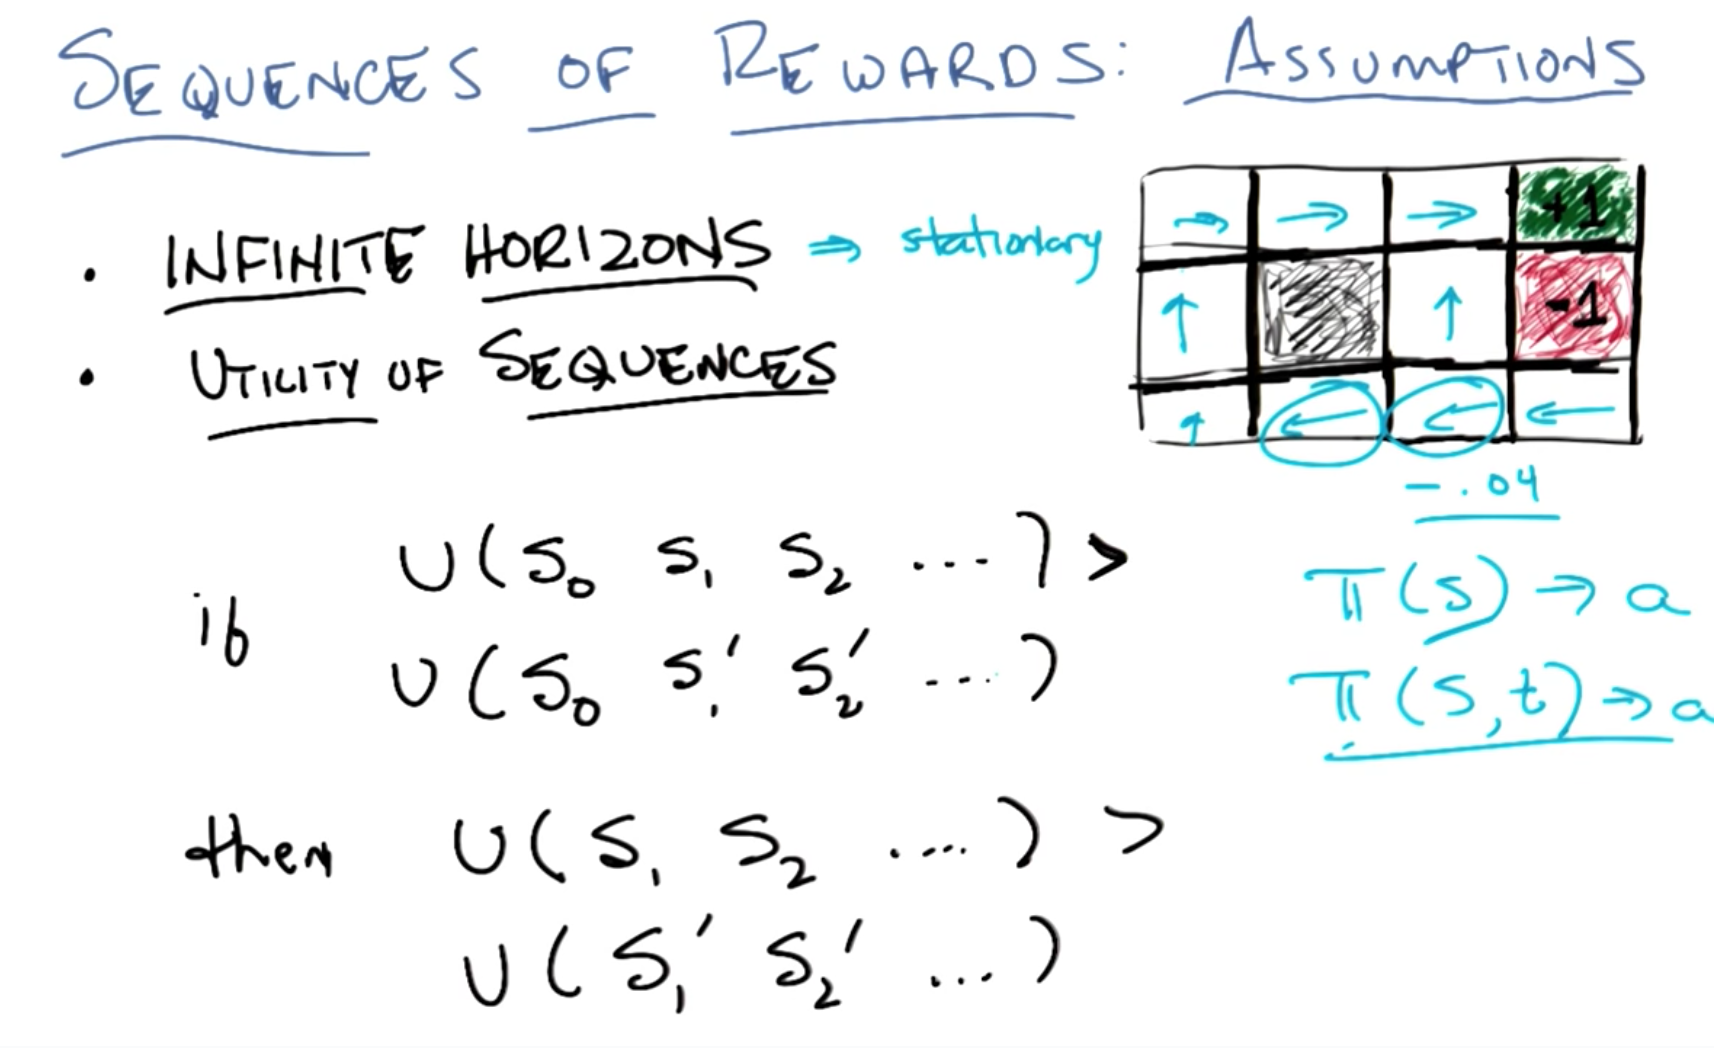 SEQUENCES OF REWARDS: ASSUMPTIONS
• INFINITE HORIZONS ⇒ stationary
• UTILITY OF SEQUENCES
+1
-1
-.04
if U(S₀ S₁ S₂ ...) >
U(S₀ S₁' S₂' ...)
π(s) → a
π(s,t) → a
then U(S₁ S₂ ....) >
U(S₁' S₂' ...)